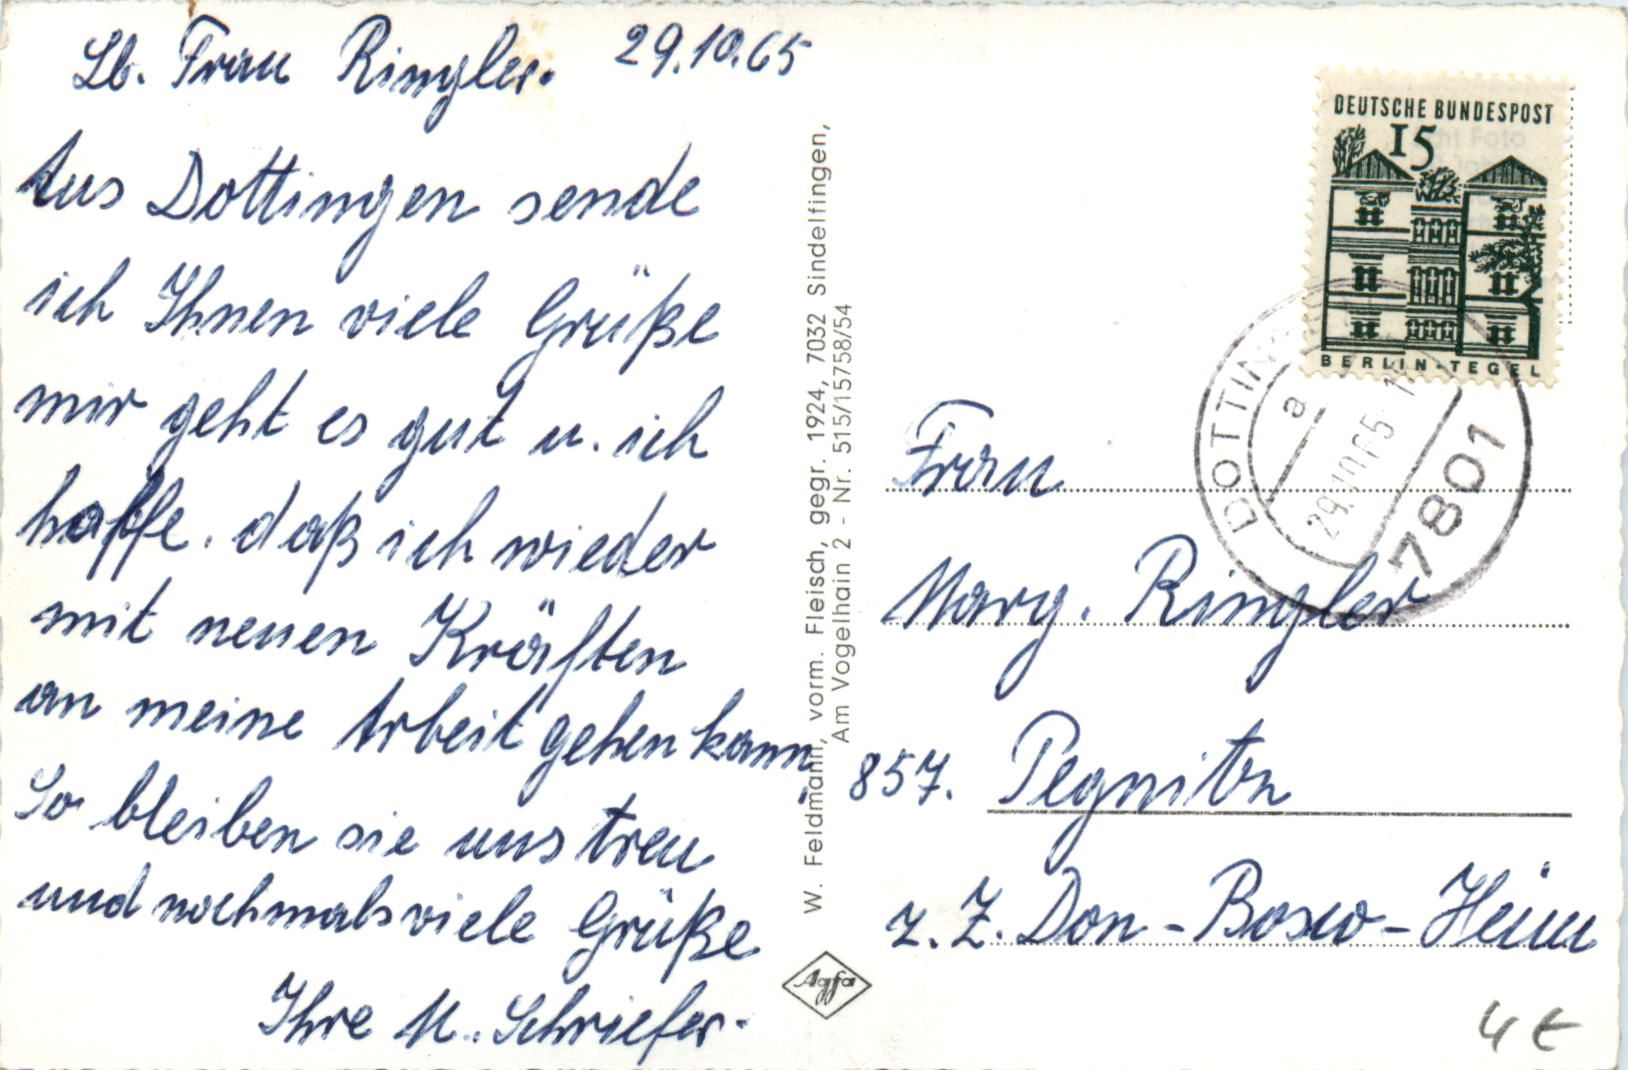 Lb. Frau Ringler. 29.10.65
Aus Dottingen sende
ich Ihnen viele Grüße
mir geht es gut u. ich
hoffe, daß ich wieder
mit neuen Kräften
an meine Arbeit gehen kann,
So bleiben sie uns treu
und nochmals viele Grüße
Ihre M. Schriefer.
W. Feldmann, vorm. Fleisch, gegr. 1924, 7032 Sindelfingen,
Am Vogelhain 2 - Nr. 515/15758/54
Agfa
DEUTSCHE BUNDESPOST
15
BERLIN-TEGEL
a
29.10.65
7801
Frau
Marg. Ringler
857. Pegnitz
z. Z. Don-Bosco-Heim
4 €